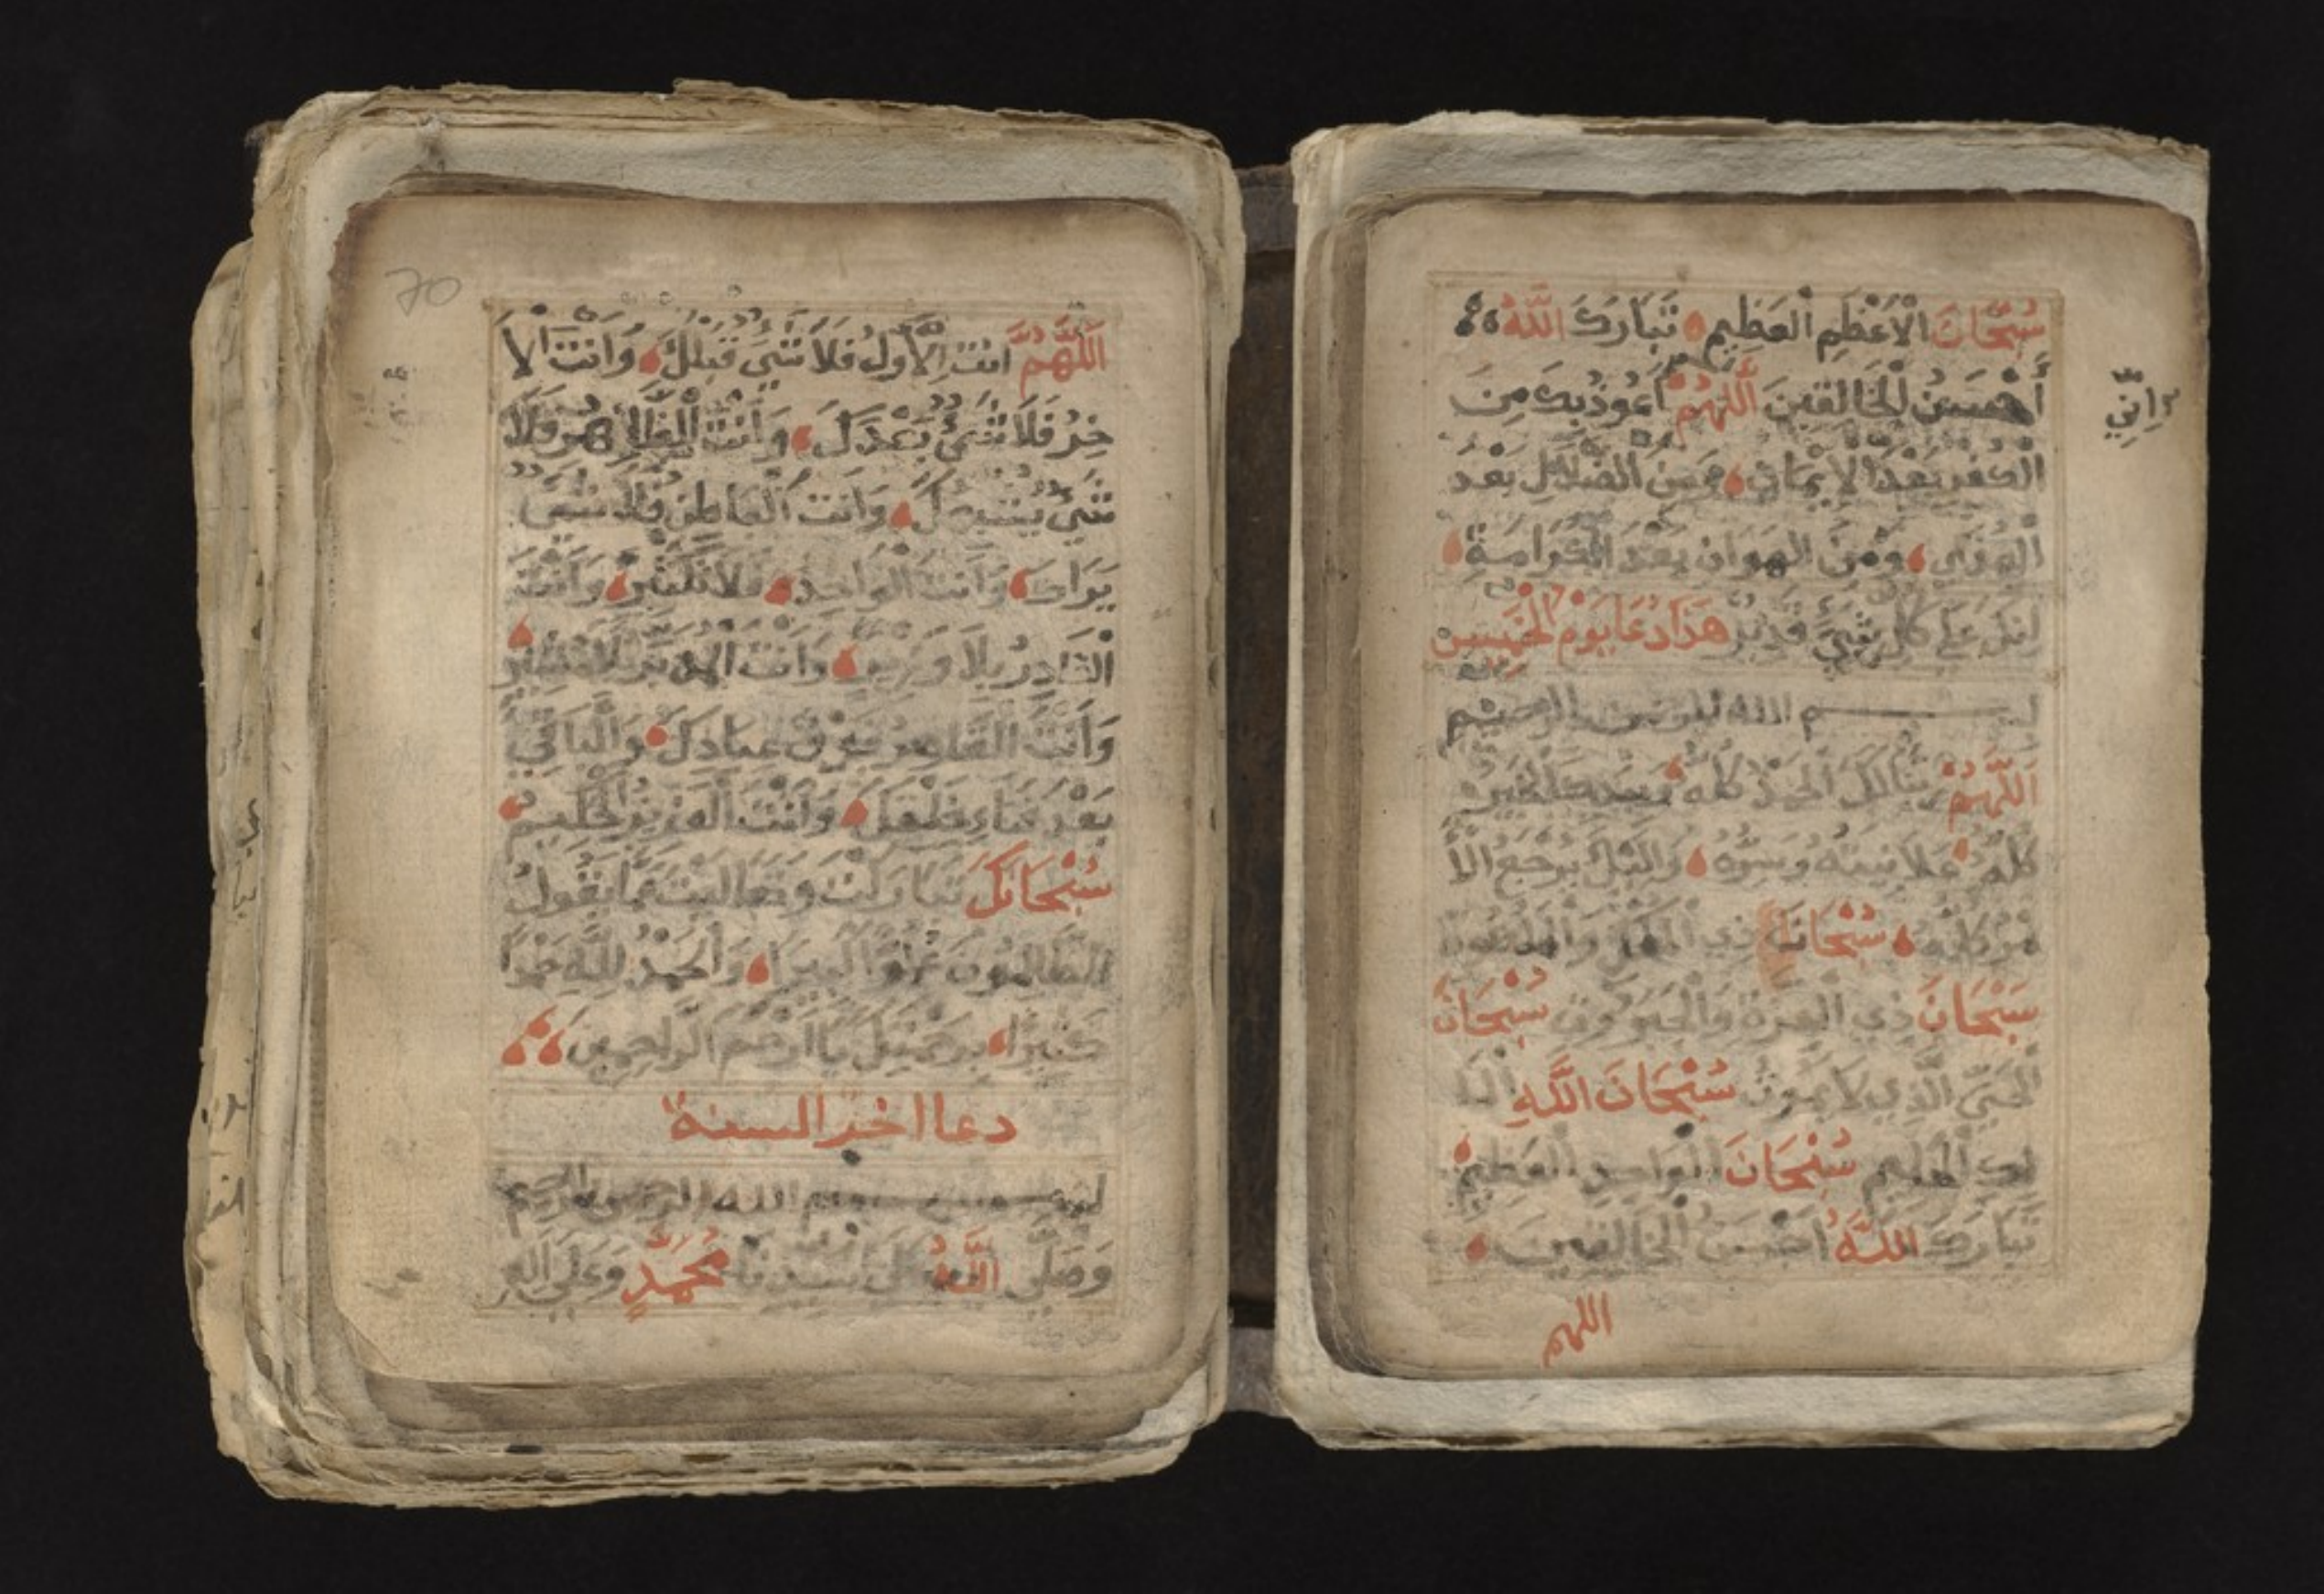 سُبْحَانَ الْأَعْظَمِ الْعَظِيمِ تَبَارَكَ اللَّهُ
أَحْسَنُ الْخَالِقِينَ اَللَّهُمَّ أَعُوذُ بِكَ مِنَ
وَإِنِّي
الْكُفْرِ بَعْدَ الْإِيمَانِ وَمِنَ الضَّلَالِ بَعْدَ
الْهُدَى وَمِنَ الْهَوَانِ بَعْدَ الْكَرَامَةِ
إِنَّكَ عَلَى كُلِّ شَيْءٍ قَدِيرٌ هَذَا دُعَا يَوْمِ الْخَمِيسِ
بسم الله الرحمن الرحيم
اَللَّهُمَّ رَبَّنَا لَكَ الْحَمْدُ كُلُّهُ وَبِيَدِكَ الْخَيْرُ
كُلُّهُ عَلَانِيَتُهُ وَسِرُّهُ وَإِلَيْكَ يَرْجِعُ الْأَ
مْرُ كُلُّهُ سُبْحَانَ ذِي الْمُلْكِ وَالْمَلَكُوتِ
سُبْحَانَ ذِي الْعِزَّةِ وَالْجَبَرُوتِ سُبْحَانَ
الْحَيِّ الَّذِي لَا يَمُوتُ سُبْحَانَ اللَّهِ
سُبْحَانَ الْوَاحِدِ الْعَظِيمِ
تَبَارَكَ اللَّهُ أَحْسَنُ الْخَالِقِينَ
اللهم
70
اَللَّهُمَّ أَنْتَ الْأَوَّلُ فَلَا شَيْءَ قَبْلَكَ وَأَنْتَ الْآ
خِرُ فَلَا شَيْءَ بَعْدَكَ وَأَنْتَ الظَّاهِرُ فَلَا
شَيْءَ يُشْبِهُكَ وَأَنْتَ الْبَاطِنُ فَلَا شَيْءَ
يَرَاكَ وَأَنْتَ الْوَاحِدُ فَلَا وَأَنْتَ
الْقَادِرُ بِلَا وَزِيرٍ وَأَنْتَ الْمُدَبِّرُ بِلَا مُشِيرٍ
وَأَنْتَ الْقَاهِرُ فَوْقَ عِبَادِكَ وَالْبَاقِي
بَعْدَ فَنَاءِ خَلْقِكَ وَأَنْتَ الْعَزِيزُ الْحَكِيمُ
سُبْحَانَكَ تَبَارَكْتَ وَتَعَالَيْتَ عَمَّا يَقُولُ
الظَّالِمُونَ عُلُوًّا كَبِيرًا وَالْحَمْدُ لِلَّهِ حَمْدًا
كَثِيرًا بِرَحْمَتِكَ يَا أَرْحَمَ الرَّاحِمِينَ
دعا اخير السنة
بسم الله الرحمن الرحيم
وَصَلَّى اللَّهُ عَلَى سَيِّدِنَا مُحَمَّدٍ وَعَلَى آلِهِ